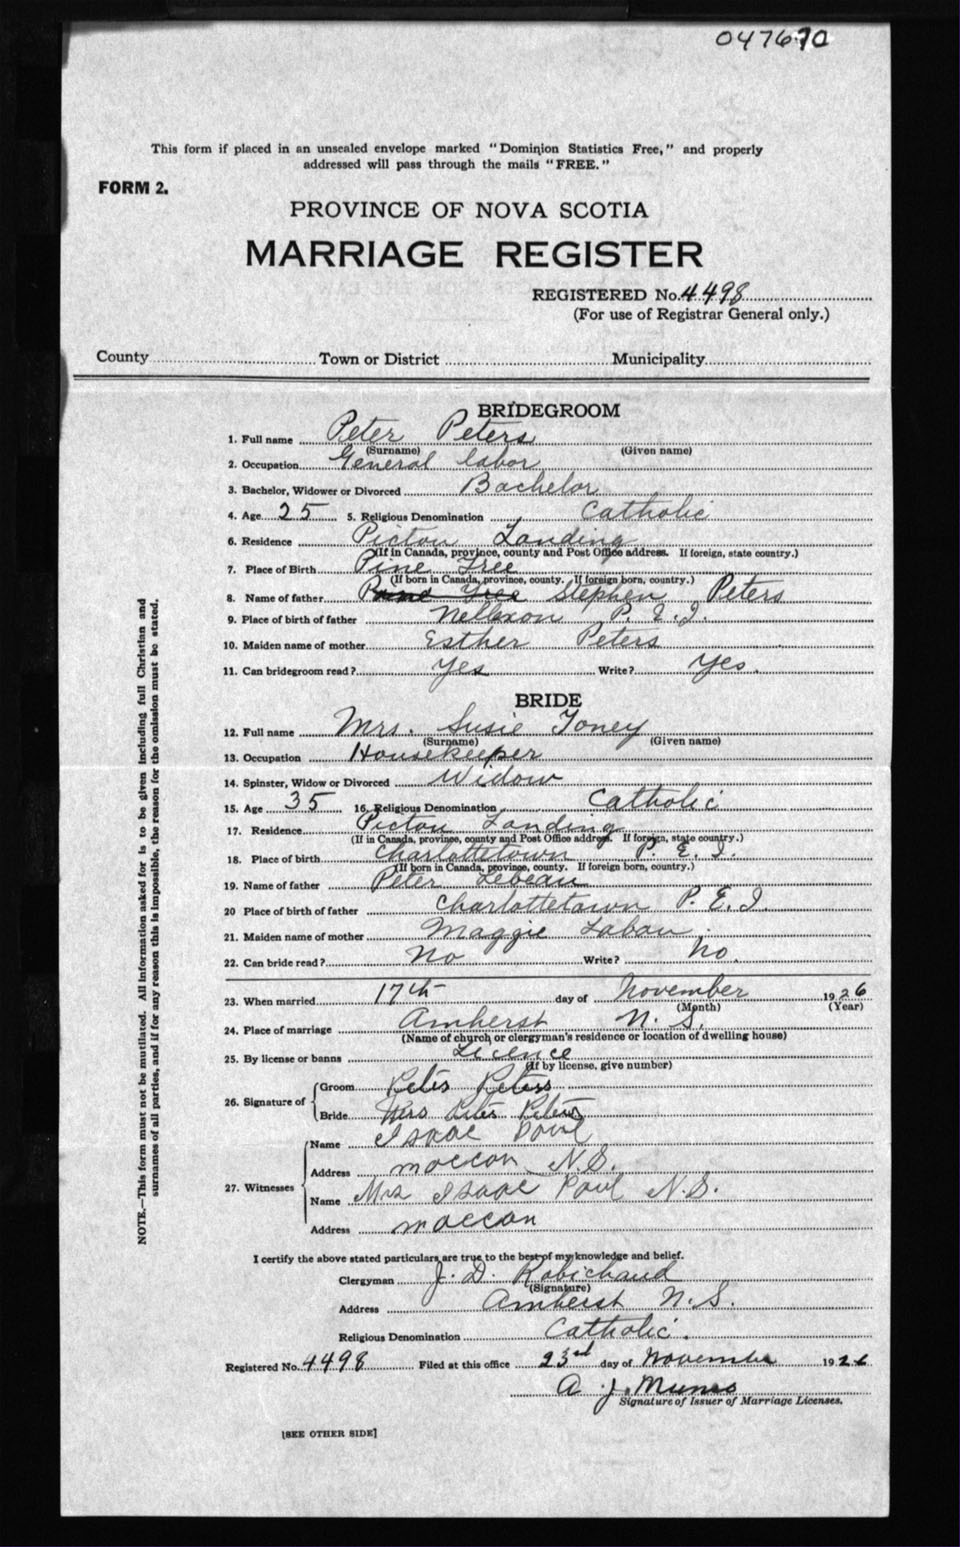 047670
This form if placed in an unsealed envelope marked "Dominion Statistics Free," and properly
addressed will pass through the mails "FREE."
FORM 2.
PROVINCE OF NOVA SCOTIA
MARRIAGE REGISTER
REGISTERED No. 4498
(For use of Registrar General only.)
County Town or District Municipality
BRIDEGROOM
1. Full name Peter Peters
(Surname) (Given name)
2. Occupation General labor
3. Bachelor, Widower or Divorced Bachelor
4. Age 25 5. Religious Denomination Catholic
6. Residence Pictou Landing
(If in Canada, province, county and Post Office address. If foreign, state country.)
7. Place of Birth Pine Tree
(If born in Canada, province, county. If foreign born, country.)
8. Name of father Stephen Peters
9. Place of birth of father P. E. I.
10. Maiden name of mother Esther Peters
11. Can bridegroom read? Yes Write? Yes.
BRIDE
12. Full name Mrs. Susie Toney
(Surname) (Given name)
13. Occupation Housekeeper
14. Spinster, Widow or Divorced Widow
15. Age 35 16. Religious Denomination Catholic
17. Residence Pictou Landing
(If in Canada, province, county and Post Office address. If foreign, state country.)
18. Place of birth Charlottetown P. E. I.
(If born in Canada, province, county. If foreign born, country.)
19. Name of father Peter Lebeau
20 Place of birth of father Charlottetown P. E. I.
21. Maiden name of mother Maggie Labau
22. Can bride read? No Write? No.
23. When married 17th day of November 1926
(Month) (Year)
24. Place of marriage Amherst N. S.
(Name of church or clergyman's residence or location of dwelling house)
25. By license or banns Licence
(If by license, give number)
26. Signature of
Groom Peter Peters
Bride Mrs Peter Peters
27. Witnesses
Name Isaac Paul
Address maccan N.S.
Name Mrs Isaac Paul N.S.
Address maccan
I certify the above stated particulars are true to the best of my knowledge and belief.
Clergyman J. D. Robichaud
(Signature)
Address Amherst N. S.
Religious Denomination Catholic.
Registered No. 4498 Filed at this office 23rd day of November 1926
A J. Munro
Signature of Issuer of Marriage Licenses.
[SEE OTHER SIDE]
NOTE.—This form must not be mutilated. All information asked for is to be given including full Christian and
surnames of all parties, and if for any reason this is impossible, the reason for the omission must be stated.